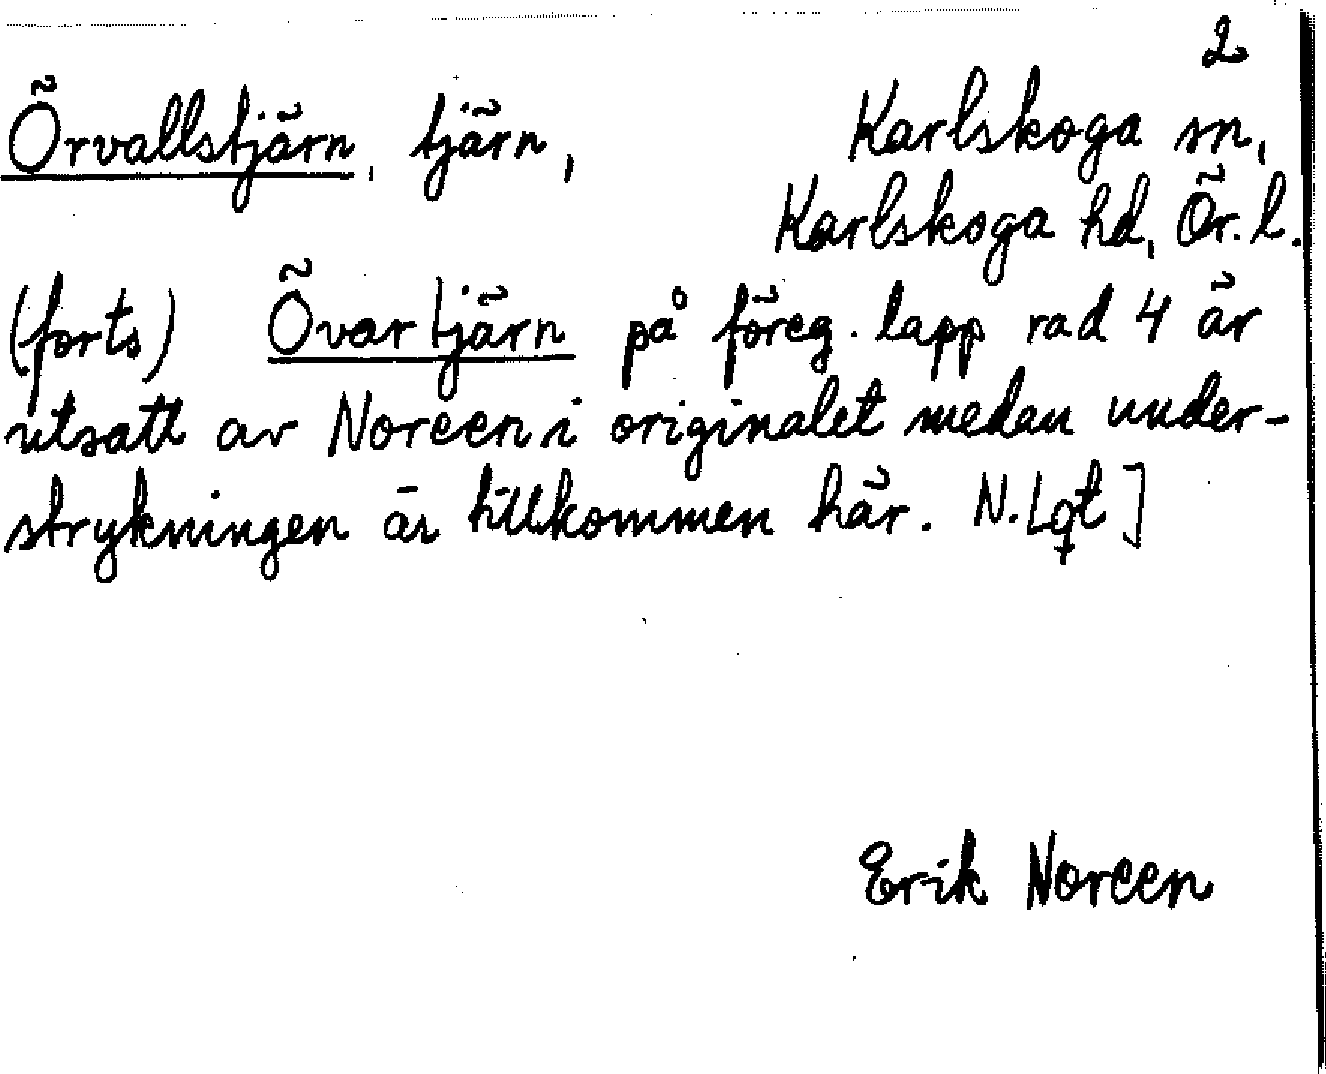 2
Örvallstjärn, tjärn, Karlskoga sn,
Karlskoga hd, Ör. l.
(forts) Övartjärn på föreg. lapp rad 4 är
utsatt av Noreen i originalet medan under-
strykningen är tillkommen här. N. Lqt]
Erik Noreen